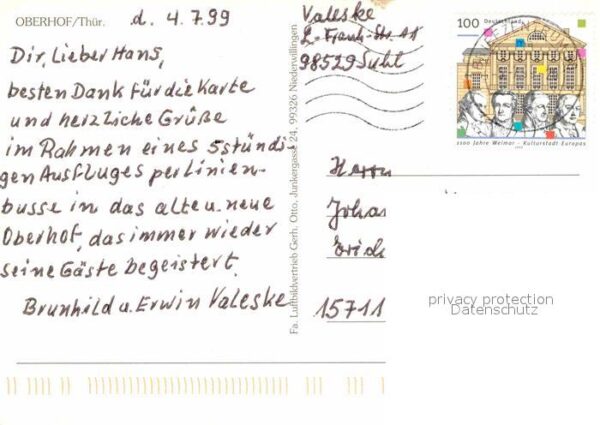 OBERHOF/Thür.
d. 4.7.99
Dir, Lieber Hans,
besten Dank für die Karte
und herzliche Grüße
im Rahmen eines 5stündi-
gen Ausfluges per Linien-
busse in das alte u. neue
Oberhof, das immer wieder
seine Gäste begeistert.
Brunhild u. Erwin Valeske
Fa. Luftbildvertrieb Gerh. Otto, Junkergasse 24, 99326 Niederwillingen
Valeske
98529 Suhl
100 Deutschland
1100 Jahre Weimar - Kulturstadt Europas
Herrn
Joha
Erich
15711
privacy protection
Datenschutz